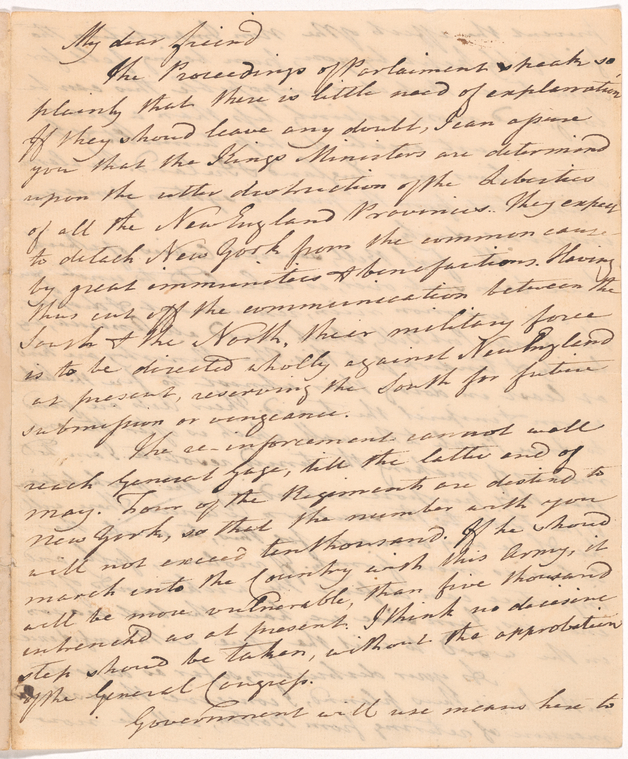 My dear friend
The Proceedings of Parlaiment speak so
plainly that there is little need of explanation
If they should leave any doubt, I can assure
you that the Kings Ministers are determind
upon the utter distruction of the Liberties
of all the New England Provinces. They expect
to detach New York from the common cause
by great immunities & benefactions. Having
thus cut off the communication between the
South & the North, their military force
is to be directed wholly against New England
at present, reserving the South for future
submission or vengeance.
The re-inforcement cannot well
reach General Gage, till the latter end of
may. Four of the Regiments are destind to
New York, so that the number with you
will not exceed ten thousand. If he should
march into the Country with this Army, it
will be more vulnerable, than five thousand
intrenchd as at present. I think no decisive
step should be taken, without the approbation
of the General Congress.
Government will use means here to